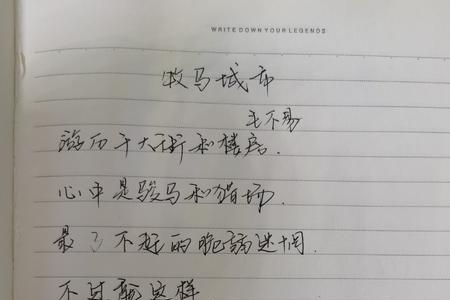 WRITE DOWN YOUR LEGENDS
牧马城市
毛不易
游历于大街和楼房.
心中是骏马和猎场.
最了不起的脆弱迷惘.
不过就这样